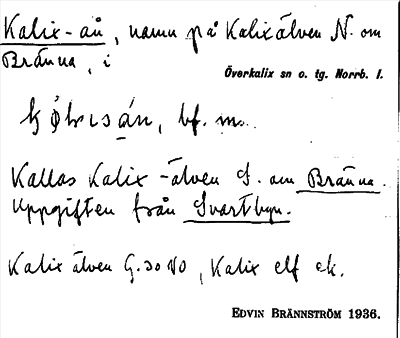 Kalix-ån, namn på Kalixälven N. om
Bränna, i
Överkalix sn o. tg. Norrb. l.
bf. m.
Kallas Kalix-älven S. om Bränna.
Uppgiften från Svartbyn.
Kalix älven G. 30 V0, Kalix elf ek.
EDVIN BRÄNNSTRÖM 1936.